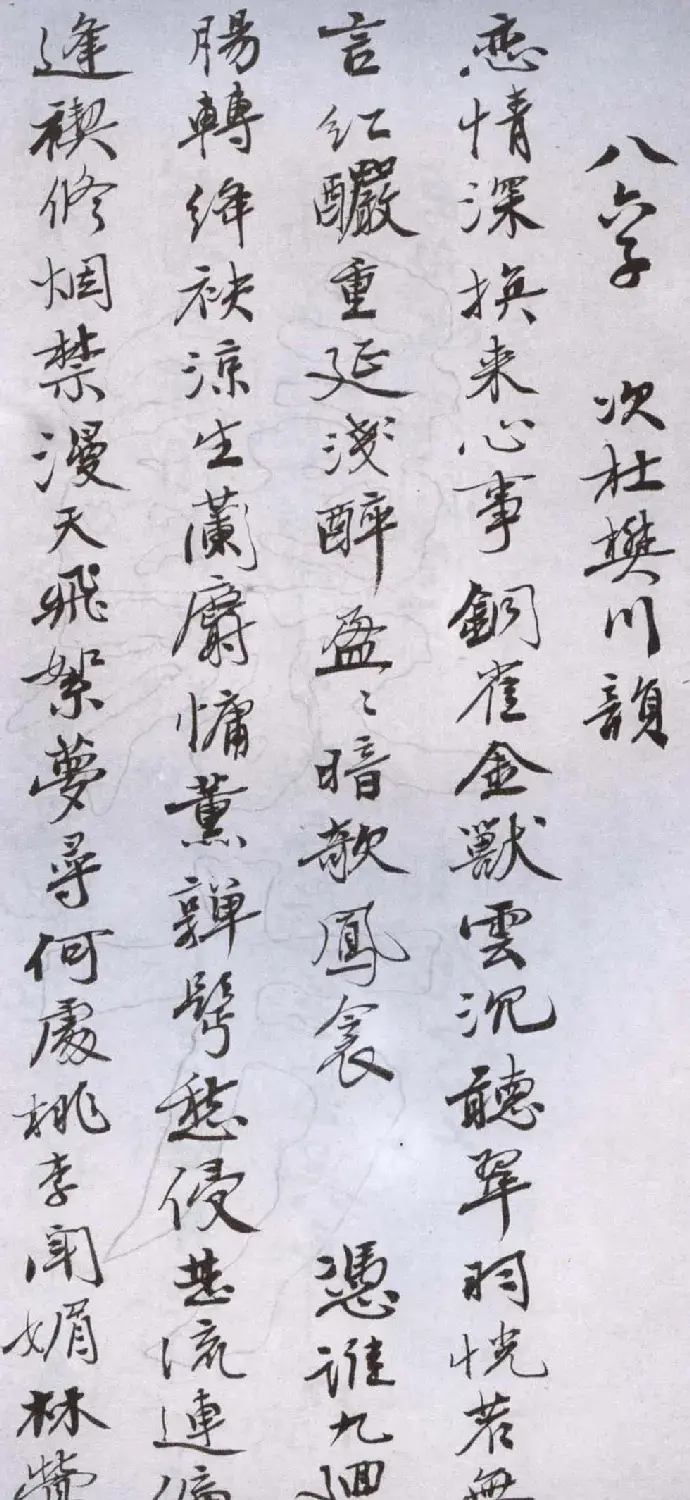 八六子 次杜樊川韻
恋情深换来心事銅雀金獸雲沉聽翠羽恍若無
言红釅重延淺醉盈〻暗欹鳳衾 憑誰九迴
腸轉絳袂涼生蘭麝慵薰嚲髩愁侵甚流連偏
逢禊修烟禁漫天飛絮夢尋何處桃李閙媚林鶯